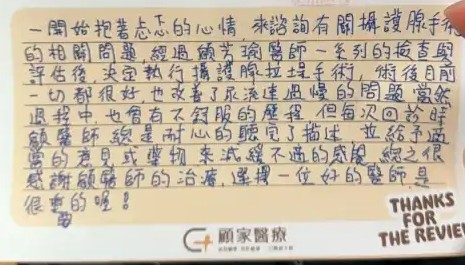 一開始抱著忐忑的心情,來諮詢有關攝護腺手術
的相關問題,經過顧芳瑜醫師一系列的檢查與
評估後,決定執行攝護腺拉提手術,術後目前
一切都很好,也改善了尿流速過慢的問題當然
過程中,也會有不舒服的歷程,但每次回診時
顧醫師總是耐心的聽完了描述,並給予適
當的意見或藥物來減緩不適的感覺,總之很
感謝顧醫師的治療,選擇一位好的醫師是
很重要的喔!
顧家醫療
THANKS
FOR
THE REVIEW